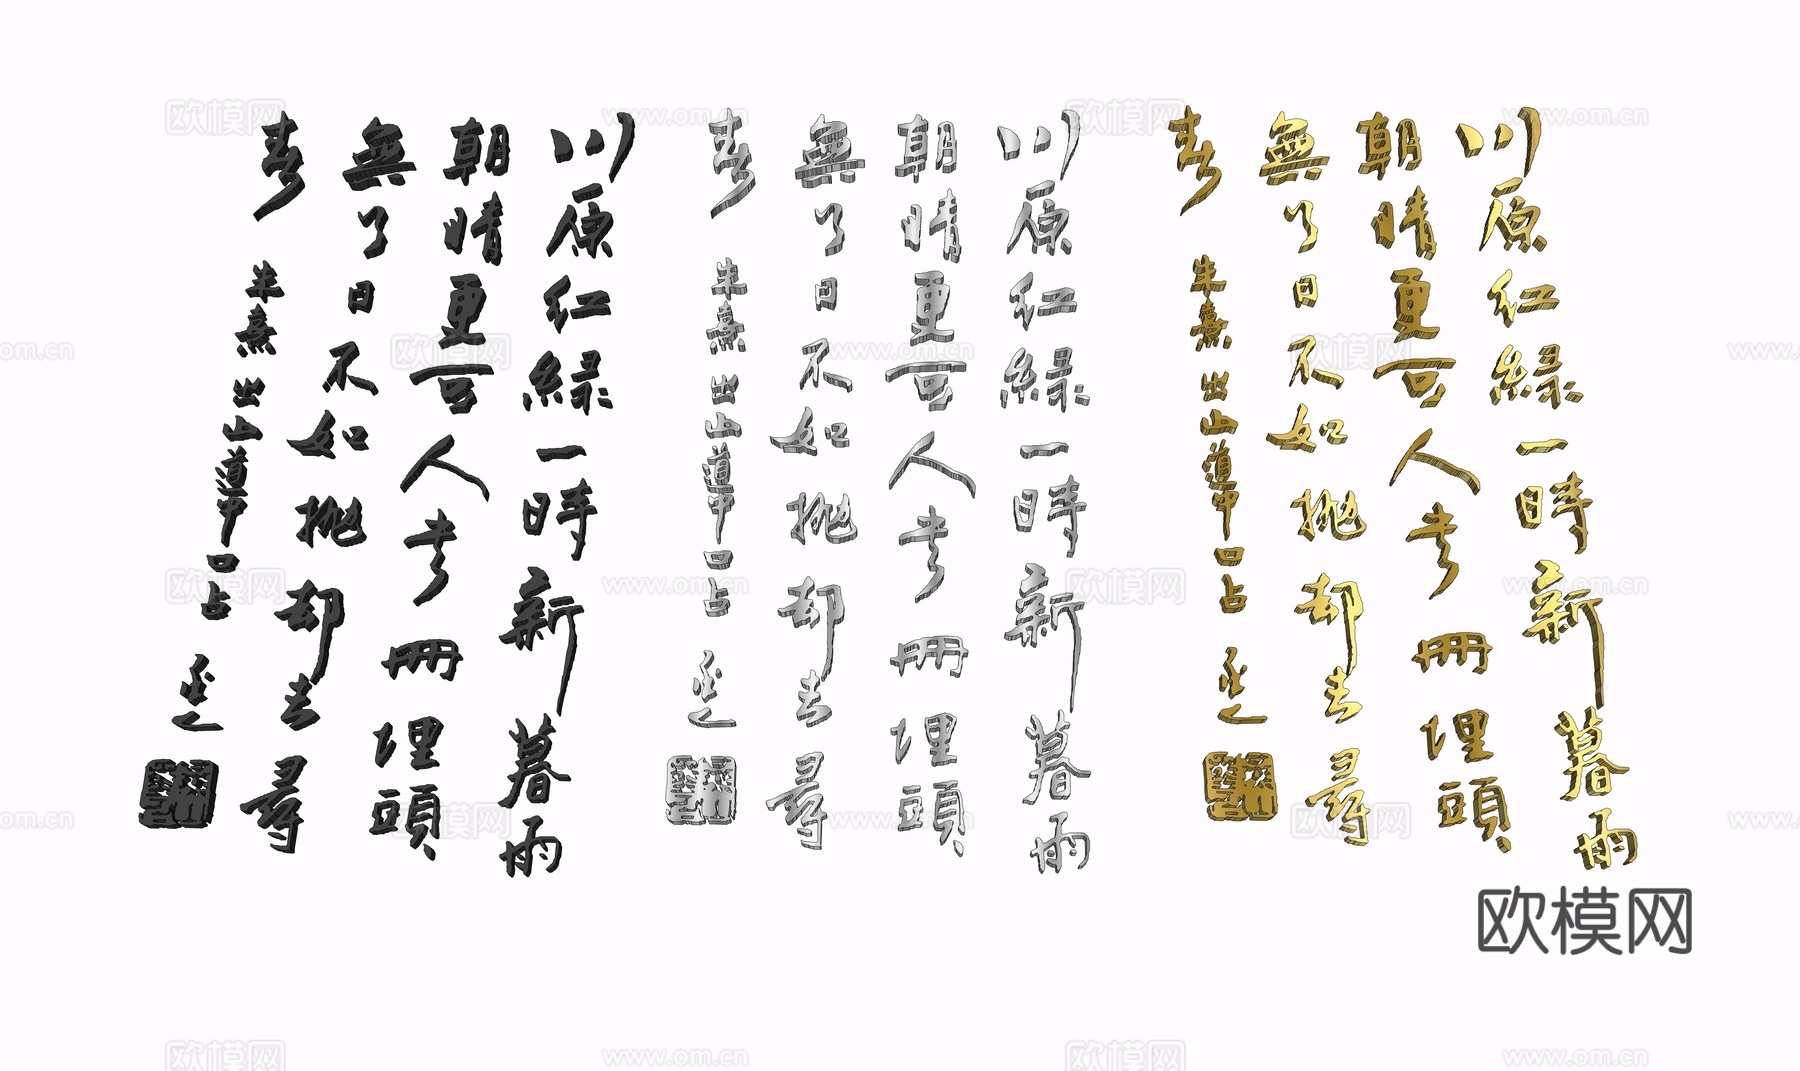 川原紅綠一時新暮雨
朝晴更可人书冊埋頭
無了日不如拋却去尋
春
朱熹出山道中口占
川原紅綠一時新暮雨
朝晴更可人书冊埋頭
無了日不如拋却去尋
春
朱熹出山道中口占
川原紅綠一時新暮雨
朝晴更可人书冊埋頭
無了日不如拋却去尋
春
朱熹出山道中口占
欧模网
www.om.cn